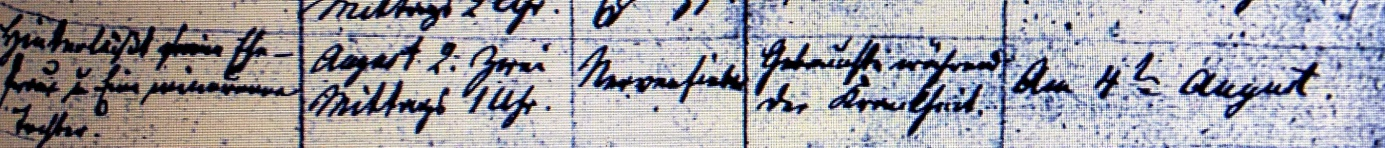 Mittags 2 Uhr.
Hinterläßt seine Ehe-
frau u. Eine minorenne
Tochter.
August 2. Zwei
Mittags 1 Uhr.
Nervenfieber
Gebrauchte während
der Krankheit.
Am 4ten August.